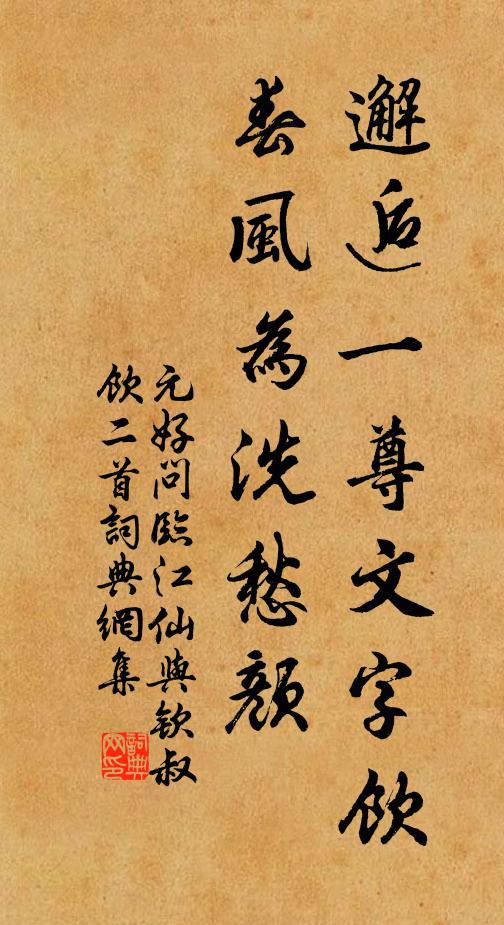 邂逅一尊文字飲
春風為洗愁顏
元好問臨江仙與欽叔
飲二首詞典網集
詞典網印